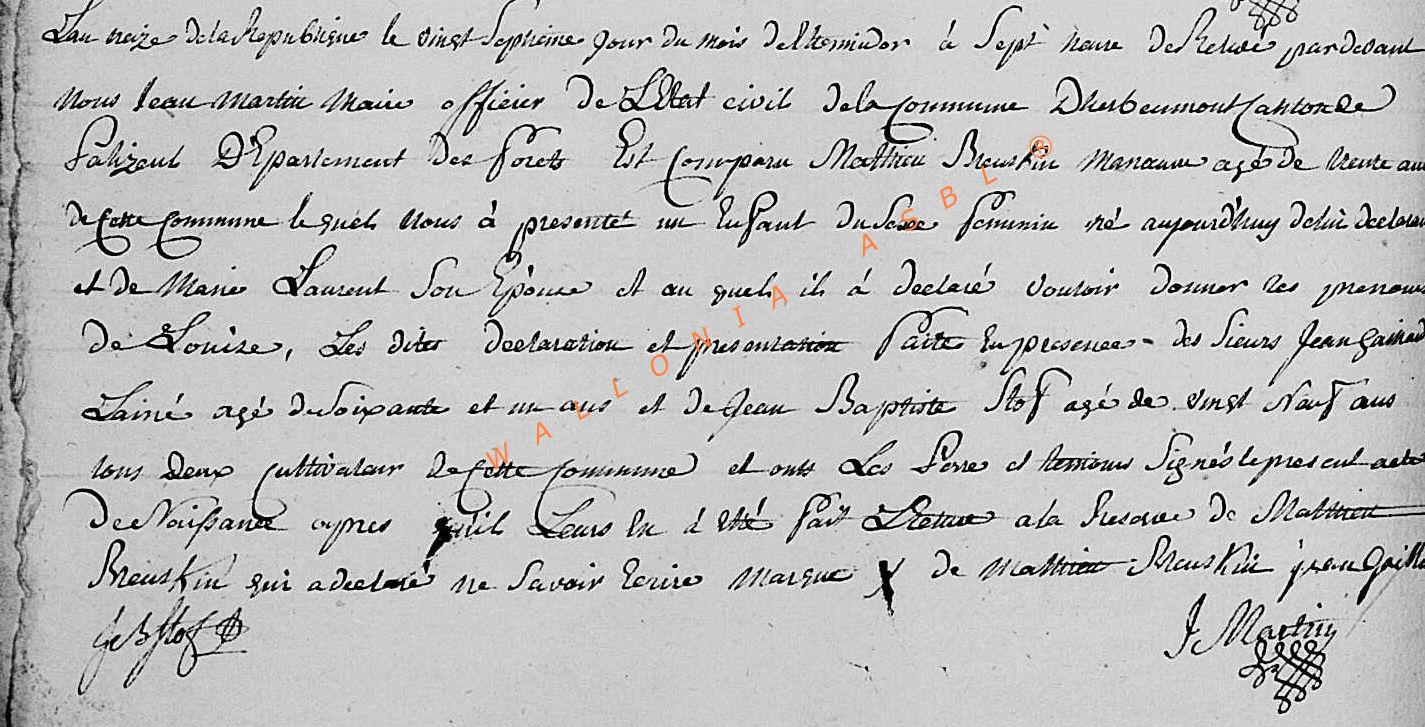 Lan treize de la Republique le vingt Septieme Jour du mois de thermidor á Sept heure de Relevé pardevant
Nous Jean Martin Maire officier de LEtat civil dela Commune Dherbeumont Canton de
Palizeul DEpartement des Forets Est Comparu Mathieu Breuskin Manœuvre agé de trente
de Cette Commune lequel Nous à presenté un Enfant du Sexe feminin né aujourd'huy de lui declarant
et de Marie Laurent Son Epouse et au quels ils á declaré Vouloir donner les prenoms
de Louise, Les dites declaration et presentation faite En presence des Sieurs Jean
Lainé agé de Soixante et un ans et de Jean Baptiste Stof agé de vingt Neuf ans
tous deux Cultivateur de Cette Commune et onts Les Perre et temoins Signés le present acte
de Naissance apres quil Leurs En á Etté fait Lecture a la Reserve de Mathieu
Breuskin qui a declaré ne Savoir Ecrire Marque X de Mathieu Breuskin jean
J B Stof
J Martin
WALLONIA ASBL ®